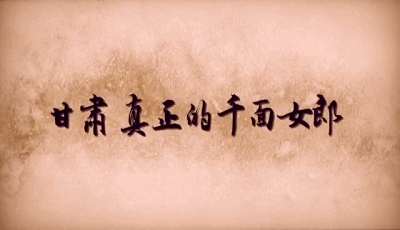 甘肃 真正的千面女郎